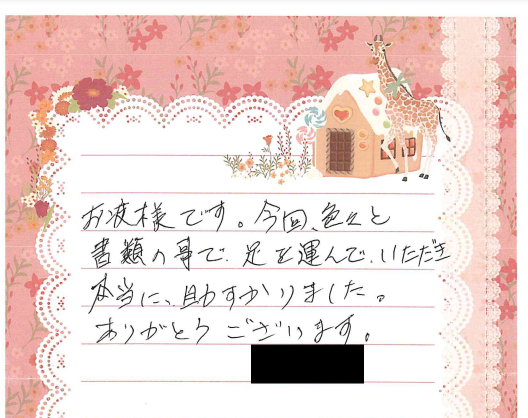 お疲様です。今回、色々と
書類の事で、足を運んで、いただき
本当に、助すかりました。
ありがとうございます。